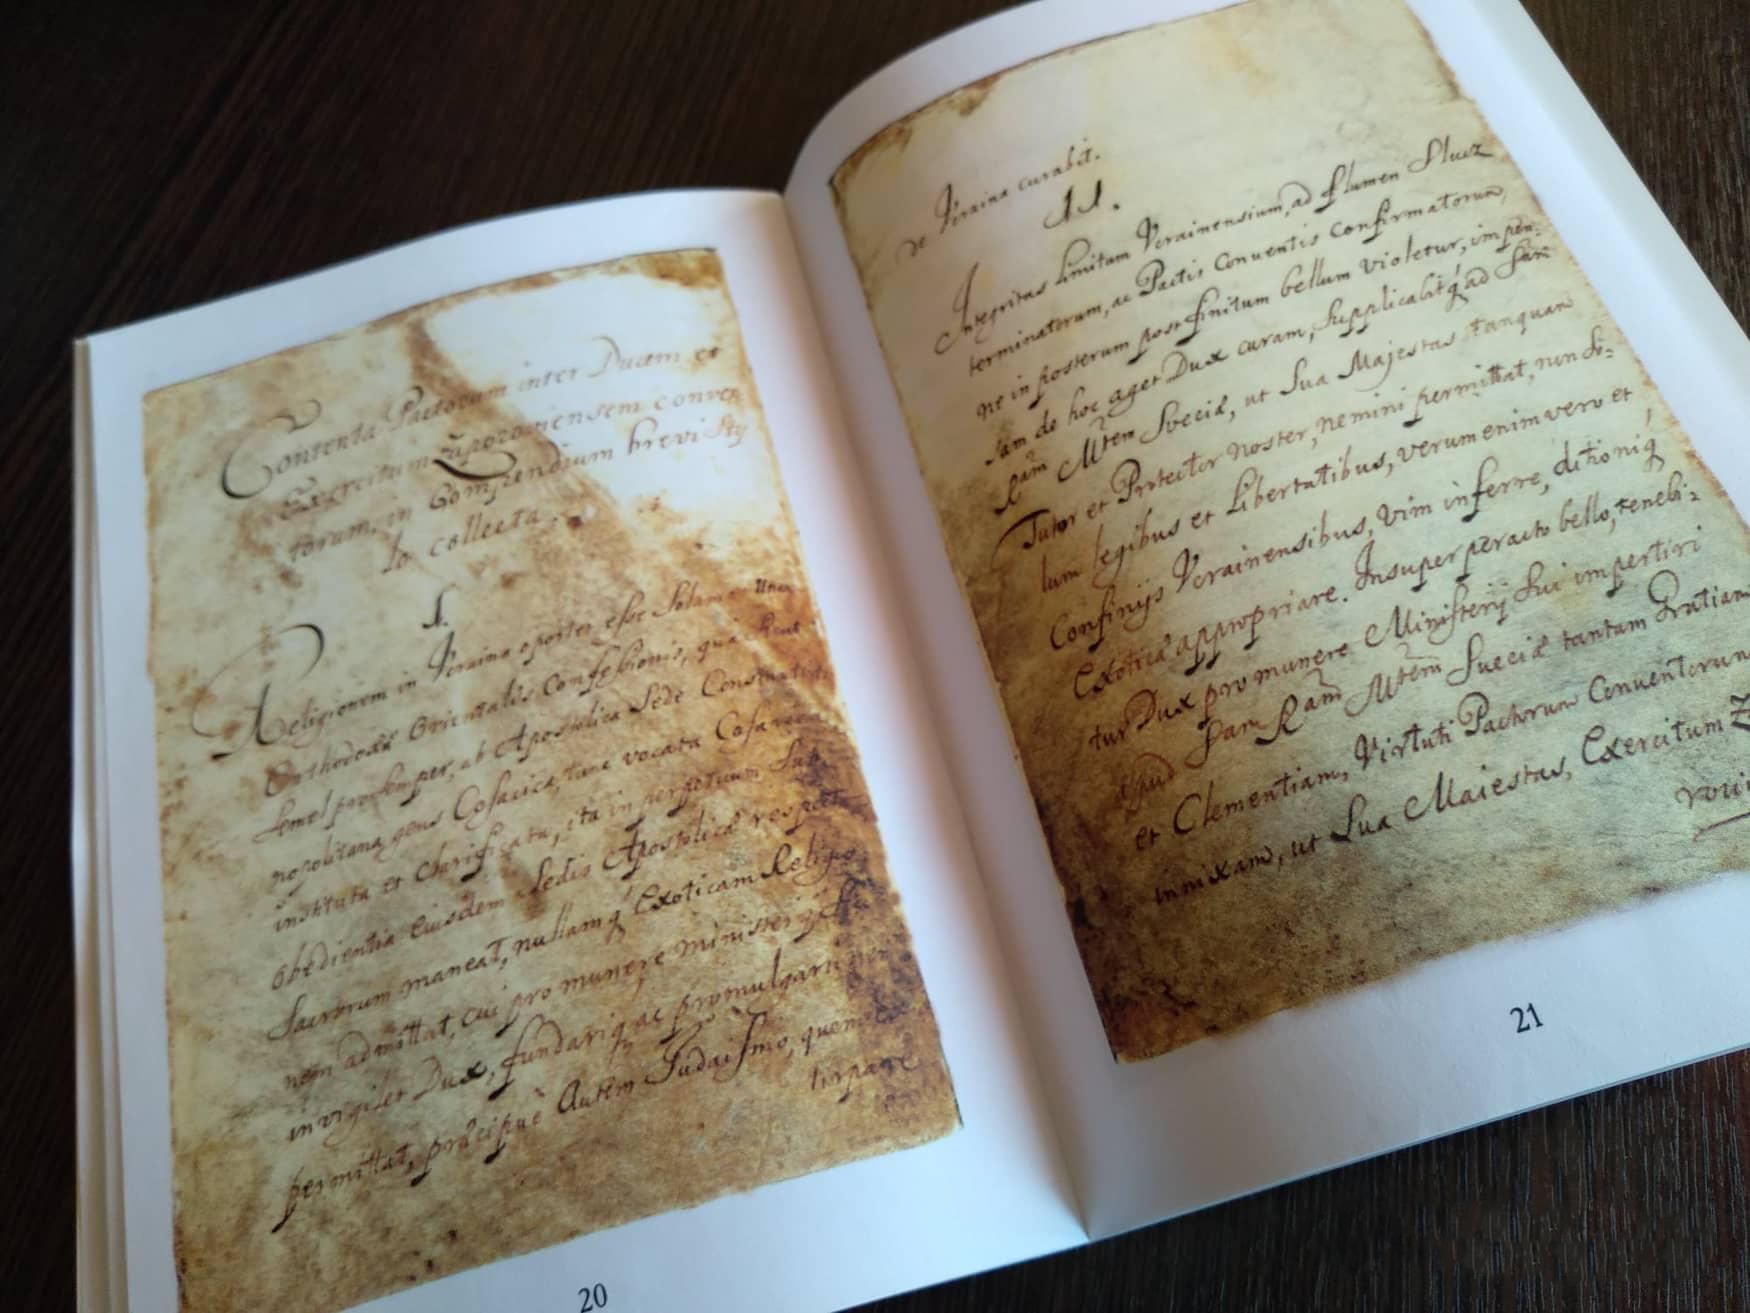 Contenta Pactorum inter Ducem et
Exercitum Zaporoviensem conven
torum, in Compendium brevi sty
lo collecta.
1.
Religionem in Vcraina oportet esse Solam
Orthodoxæ Orientalis Confessionis, qua
Semel pro semper, ab Apostolica Sede Constanti
nopolitana gens Cosacica, tunc vocata
instituta et clarificata, ita in perpetuum
obedientia eiusdem Sedis Apostolicæ respectu
Sacrorum maneat, nullamq Exoticam Religio
nem admittat, cui pro munere ministerij
invigilet Dux, fundariq ac promulgari
permittat, præcipue Autem Judaismo, quem
tirpare
20
de Vcraina curabit.
11.
Integritas limitum Vcrainensium, ad flumen Slucz
terminatorum, ac Pactis Conventis Confirmatorum,
ne in posterum post finitum bellum violetur, impen:
sam de hoc aget Dux curam, supplicabitq ad Sam
Ram Mtem Sveciæ, ut Sua Majestas tanquam
Tutor et Protector noster, nemini permittat, non so:
lum legibus et Libertatibus, verum enim vero et
Confinijs Vcrainensibus, vim inferre, ditioniq
Exoticæ appropriare. Insuper peracto bello, tenebi:
tur Dux pro munere Ministerij sui impertiri
apud Sam Ram Mtem Sueciæ tantam Gratiam
et Clementiam, Virtuti Pactorum Conventorum
innixam, ut Sua Maiestas, Exercitum
21